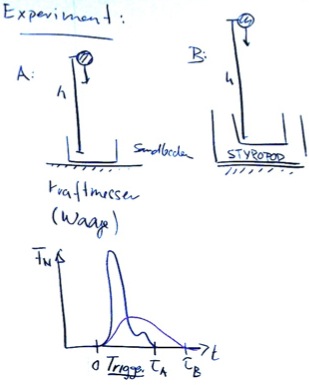 Experiment:
A:
h
Sandboden
B:
h
STYROPOD
Kraftmesser
(Waage)
F_N
0 Trigger τ_A τ_B t